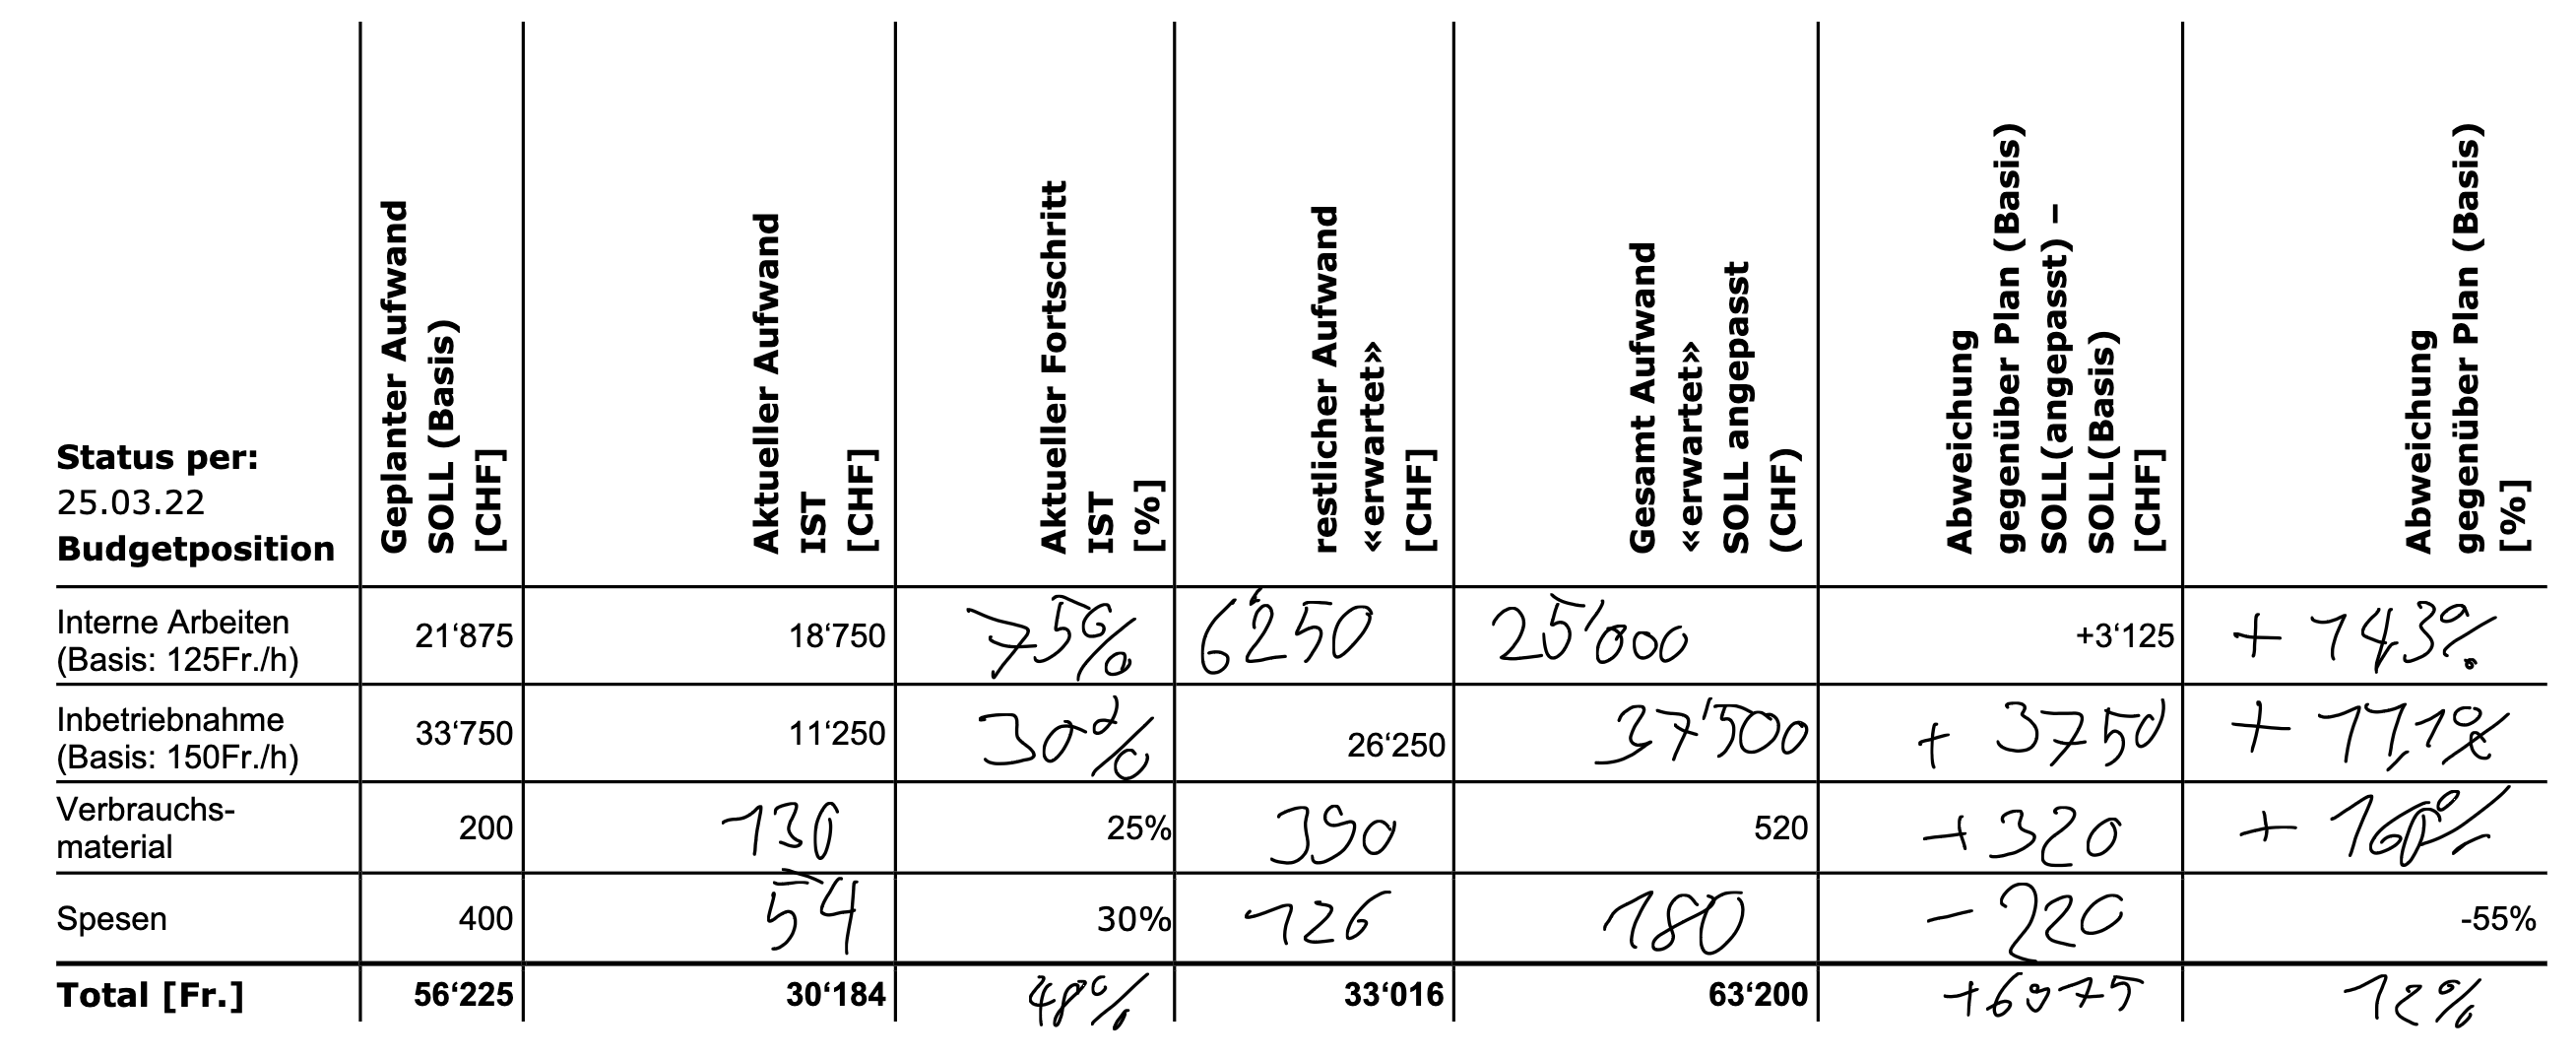 Status per:
25.03.22
Budgetposition
Geplanter Aufwand
SOLL (Basis)
[CHF]
Aktueller Aufwand
IST
[CHF]
Aktueller Fortschritt
IST
[%]
restlicher Aufwand
«erwartet»
[CHF]
Gesamt Aufwand
«erwartet»
SOLL angepasst
(CHF)
Abweichung
gegenüber Plan (Basis)
SOLL(angepasst) –
SOLL(Basis)
[CHF]
Abweichung
gegenüber Plan (Basis)
[%]
Interne Arbeiten
(Basis: 125Fr./h)
21‘875
18‘750
75%
6'250
25'000
+3‘125
+ 14,3%
Inbetriebnahme
(Basis: 150Fr./h)
33‘750
11‘250
30%
26‘250
37'500
+ 3750
+ 11,1%
Verbrauchs-
material
200
130
25%
390
520
+320
+ 160%
Spesen
400
54
30%
126
180
- 220
-55%
Total [Fr.]
56‘225
30‘184
48%
33‘016
63‘200
+6975
12%